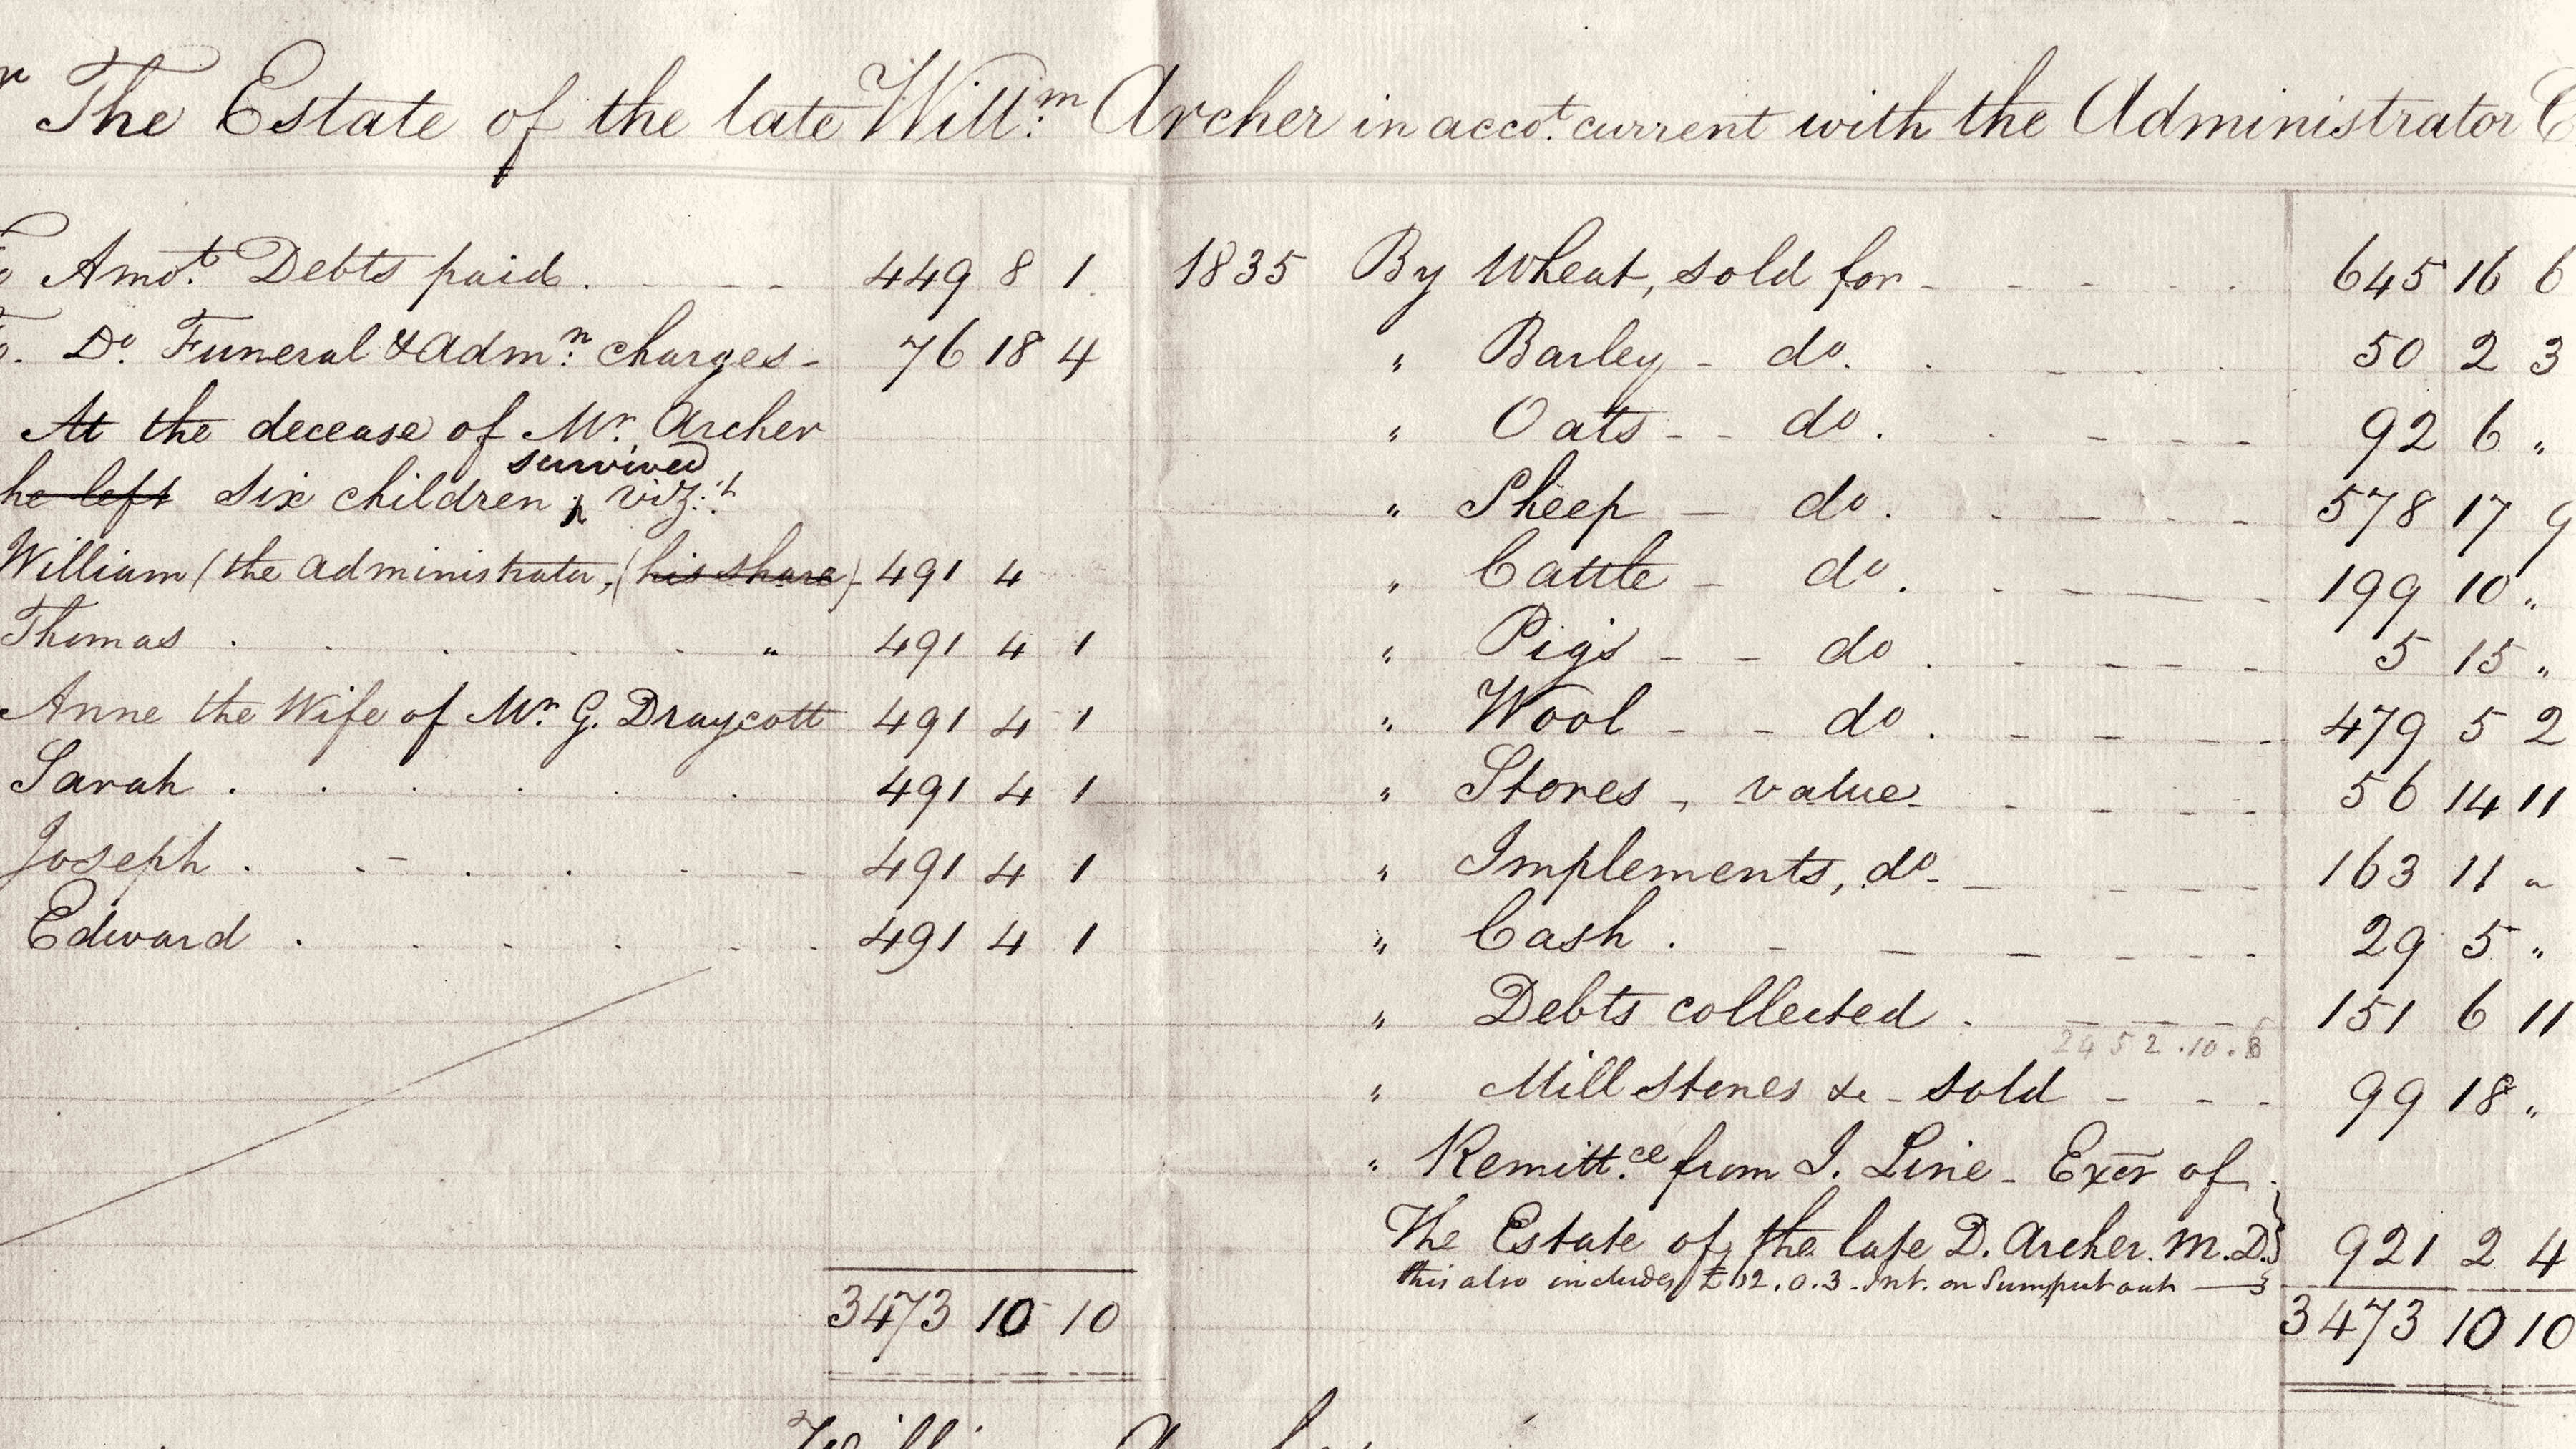 r The Estate of the late Will:m Archer in acco.t current with the Administrator C
To Amo.t Debts paid. 449 8 1
To. Do. Funeral & Adm:n charges - 76 18 4
At the decease of Mr. Archer
survived
he left six children, viz:t
William (the administrator, (his share) 491 4
Thomas . . . . . " 491 4 1
Anne the Wife of Mr. G. Draycott 491 4 1
Sarah . . . . . . 491 4 1
Joseph . . . . . 491 4 1
Edward . . . . . 491 4 1
3473 10 10
1835 By Wheat, sold for - 645 16 6
" Barley - do. 50 2 3
" Oats - - do. 92 6 "
" Sheep - do. 578 17 9
" Cattle - do. 199 10 "
" Pigs - - do. 5 15 "
" Wool - - do. 479 5 2
" Stores, value 56 14 11
" Implements, do. 163 11 "
" Cash . 29 5 "
" Debts collected . 151 6 11
2452.10.6
" Mill stones &c - sold - - - 99 18 "
" Remitt.ce from J. Line - Exor of
The Estate of the late D. Archer. M.D. 921 2 4
this also includes £12.0.3. Int. on Sum put out
3473 10 10